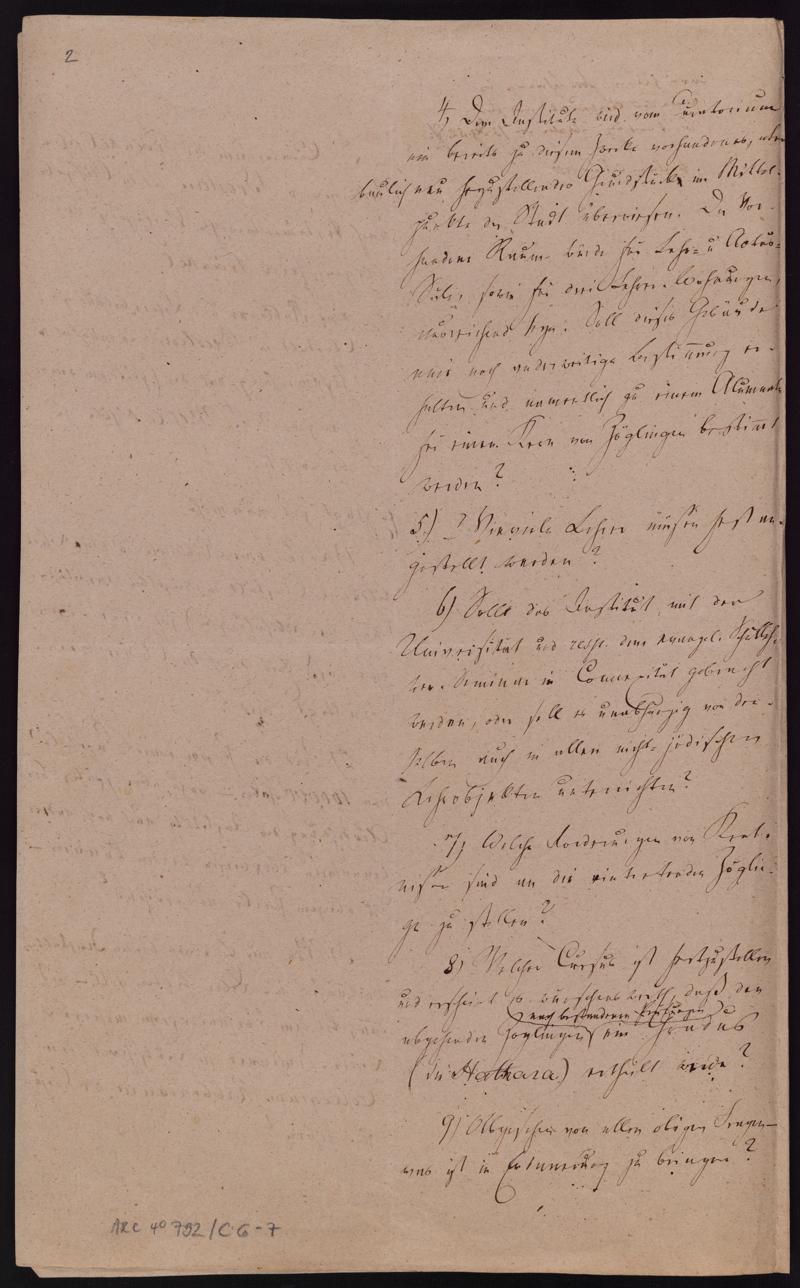 2
4, Dem Institute wird vom Curatorium
ein bereits zu diesem Zwecke vorhandenes, oder
baulich neu herzustellendes Grundstück im Mittel-
punkte der Stadt überwiesen. Der vor-
handene Raum würde für Lehr- u
Säle, sowie für drei Lehrer-Wohnungen,
ausreichend seyn. Soll dieses Gebäude
eine noch anderweitige Bestimmung er-
halten und namentlich zu einem Alumnate
für einen Kern von Zöglingen bestimmt
werden?
5.) Wieviele Lehrer müssen fest an-
gestellt werden?
6) Solle das Institut mit der
Universität und resp. dem evangel. Schulleh-
rer-Seminar in Connexität gebracht
werden, oder soll es unabhängig von den-
selben auch in allen nicht-jüdischen
Lehrobjekten unterrichten?
7, Welche Forderungen von Kent-
nissen sind an die eintretenden Zöglin-
ge zu stellen?
8) Welcher Cursus ist festzustellen
und erscheint es wünschenswerth, daß den
nach bestandenen Prüfungen
abgehenden Zöglingen ein Gradus
(die Hathara) ertheilt werde?
9) Abgesehen von allen obigen Fragen
was ist in Erinnerung zu bringen?
ARC 4° 792/C6-7